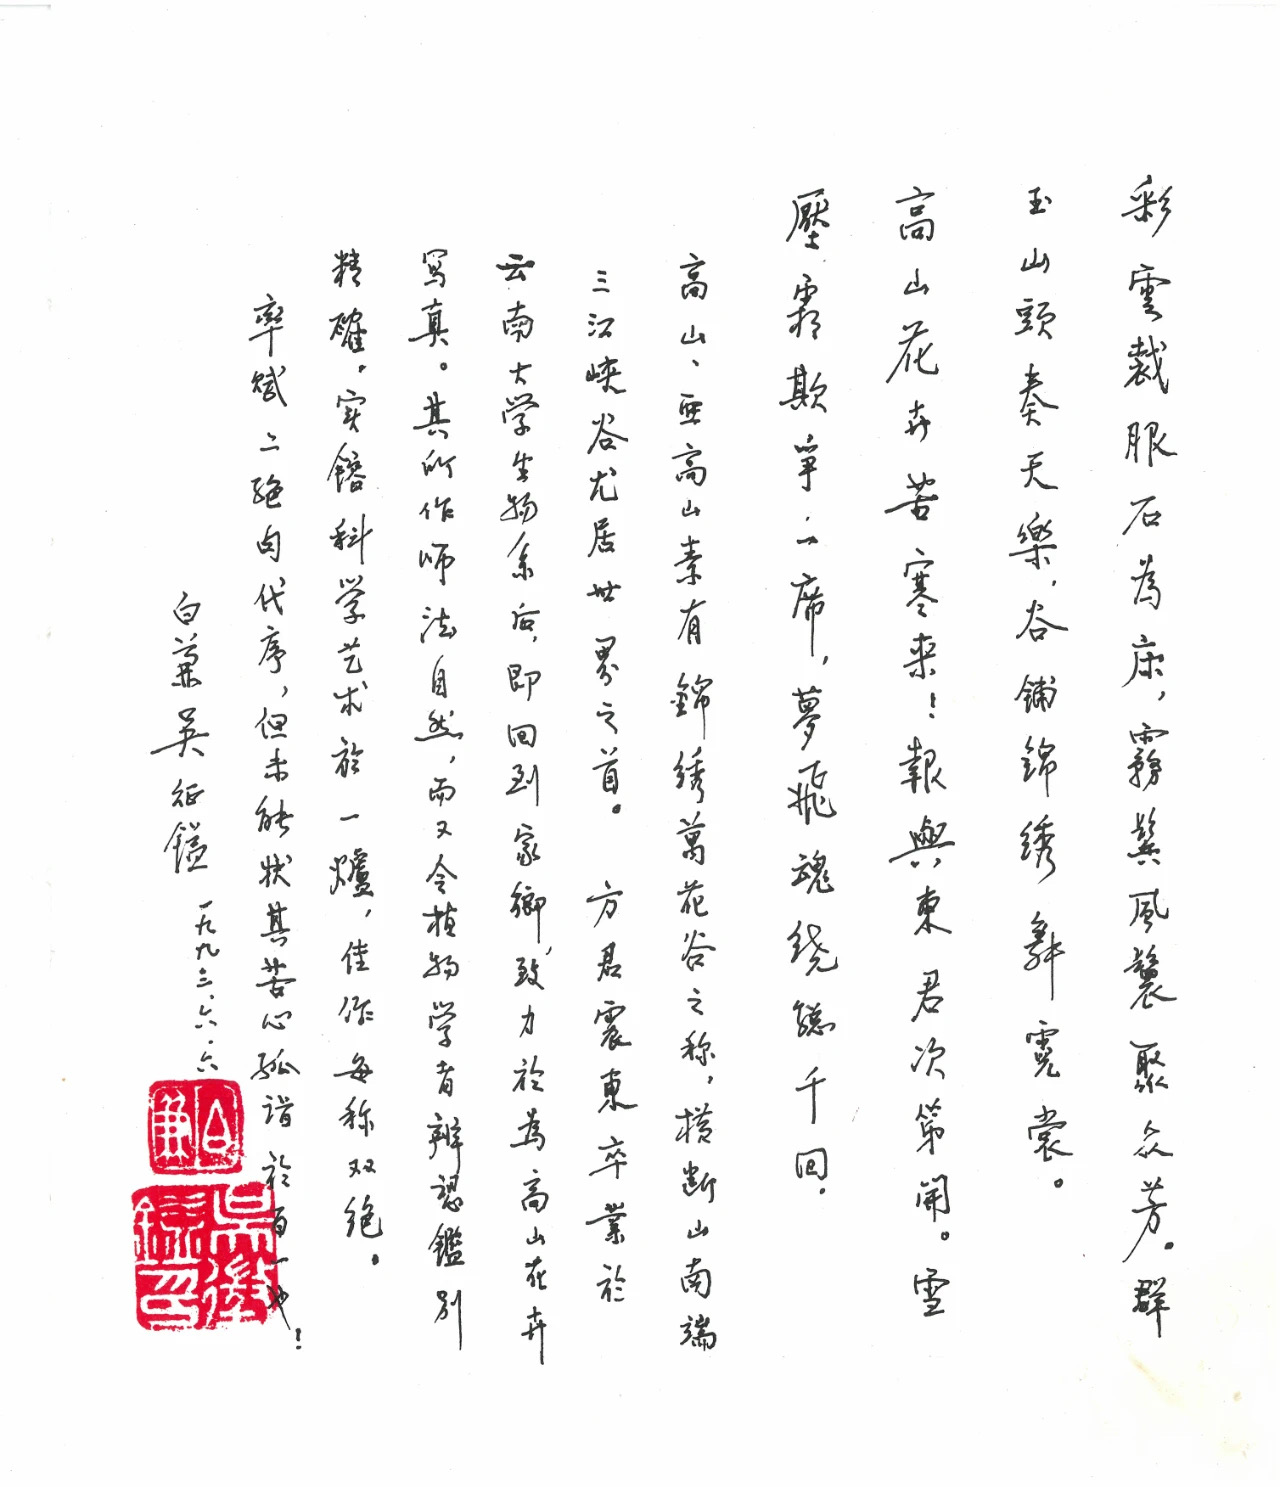 彩雲裁服石為床，霧鬢風鬟聚众芳。群
玉山頭奏天樂，谷鋪錦绣舞霓裳。
高山花卉苦寒來！報與東君次第開。雪
壓霜欺爭一席，夢飛魂绕總千回．
高山、亚高山素有錦绣萬花谷之称，横断山南端
三江峡谷尤居世界之首。方君震東卒業於
云南大学生物系后，即回到家鄉，致力於為高山花卉
写真。其所作师法自然，而又令植物学者辨認鑑別
精確．实鎔科学艺术於一爐，佳作每称双绝。
率赋二绝句代序，但未能状其苦心孤诣於百一也！
白兼吴征镒 一九九三．六．六
白兼